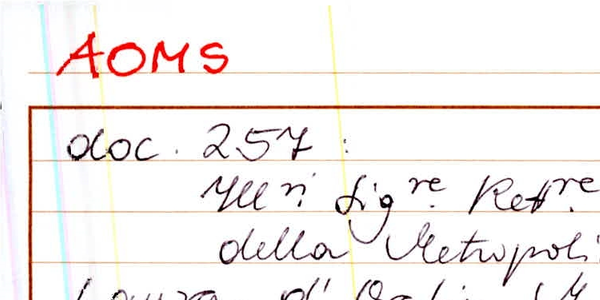 AOMS
doc. 257:
Ill.ri Sig.re Rett.re
della Metropoli
d'